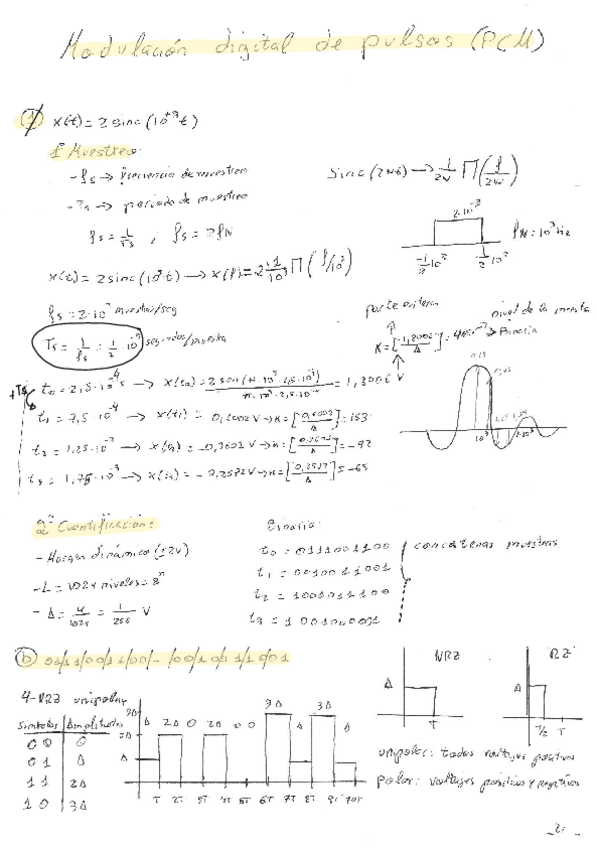 Modulación digital de pulsos (PCM)
① x(t) = 2 sinc (10⁺³t)
1º Muestreo:
- fs → frecuencia de muestreo
- Ts → periodo de muestreo
fs = 1/Ts ; fs = 2fN
sinc(2Wt) → 1/2W Π(f/2W)
2·10⁻³
-1/2 10³
1/2 10³
fN = 10³ Hz
x(t) = 2 sinc(10³t) → x(f) = 2·1/10³ Π(f/10³)
muestras/seg
Ts = 1/fs = 1/2 · 10⁻³ segundos/muestra
parte entera
nivel de la muestra
Binario
+Ts
t₀ = 2,5·10⁻⁴ s → x(t₀) = 2 sen(π·10³·2,5·10⁻⁴)/π·10³·2,5·10⁻⁴ = 1,8006 V
t₁ = 7,5·10⁻⁴ → x(t₁) = 0,6002 V → K = [0,6002/Δ] = 153
t₂ = 1,25·10⁻³ → x(t₂) = -0,3602 V → K = [0,3602/Δ] = -92
t₃ = 1,75·10⁻³ → x(t₃) = -0,2572 V → K = [0,2572/Δ] = -65
2º Cuantificación:
- Margen dinámico (±2V)
- L = 1024 niveles = 2ⁿ
- Δ = 4/1024 = 1/256 V
Binario:
t₀ = 0111001100
t₁ = 0010011001
t₂ = 1001011100
t₃ = 1001000001
concatenas muestras
ⓑ 01/11/00/11/00/- /00/10/01/10/01
4-NRZ unipolar
Símbolos | Amplitudes
00 | 0
01 | Δ
11 | 2Δ
10 | 3Δ
Δ 2Δ 0 2Δ 0 0 3Δ Δ 3Δ Δ
T 2T 3T 4T 5T 6T 7T 8T 9T 10T
NRZ
Δ
T
RZ
Δ
T/2 T
unipolar: todos voltajes positivos
polar: voltajes positivos y negativos